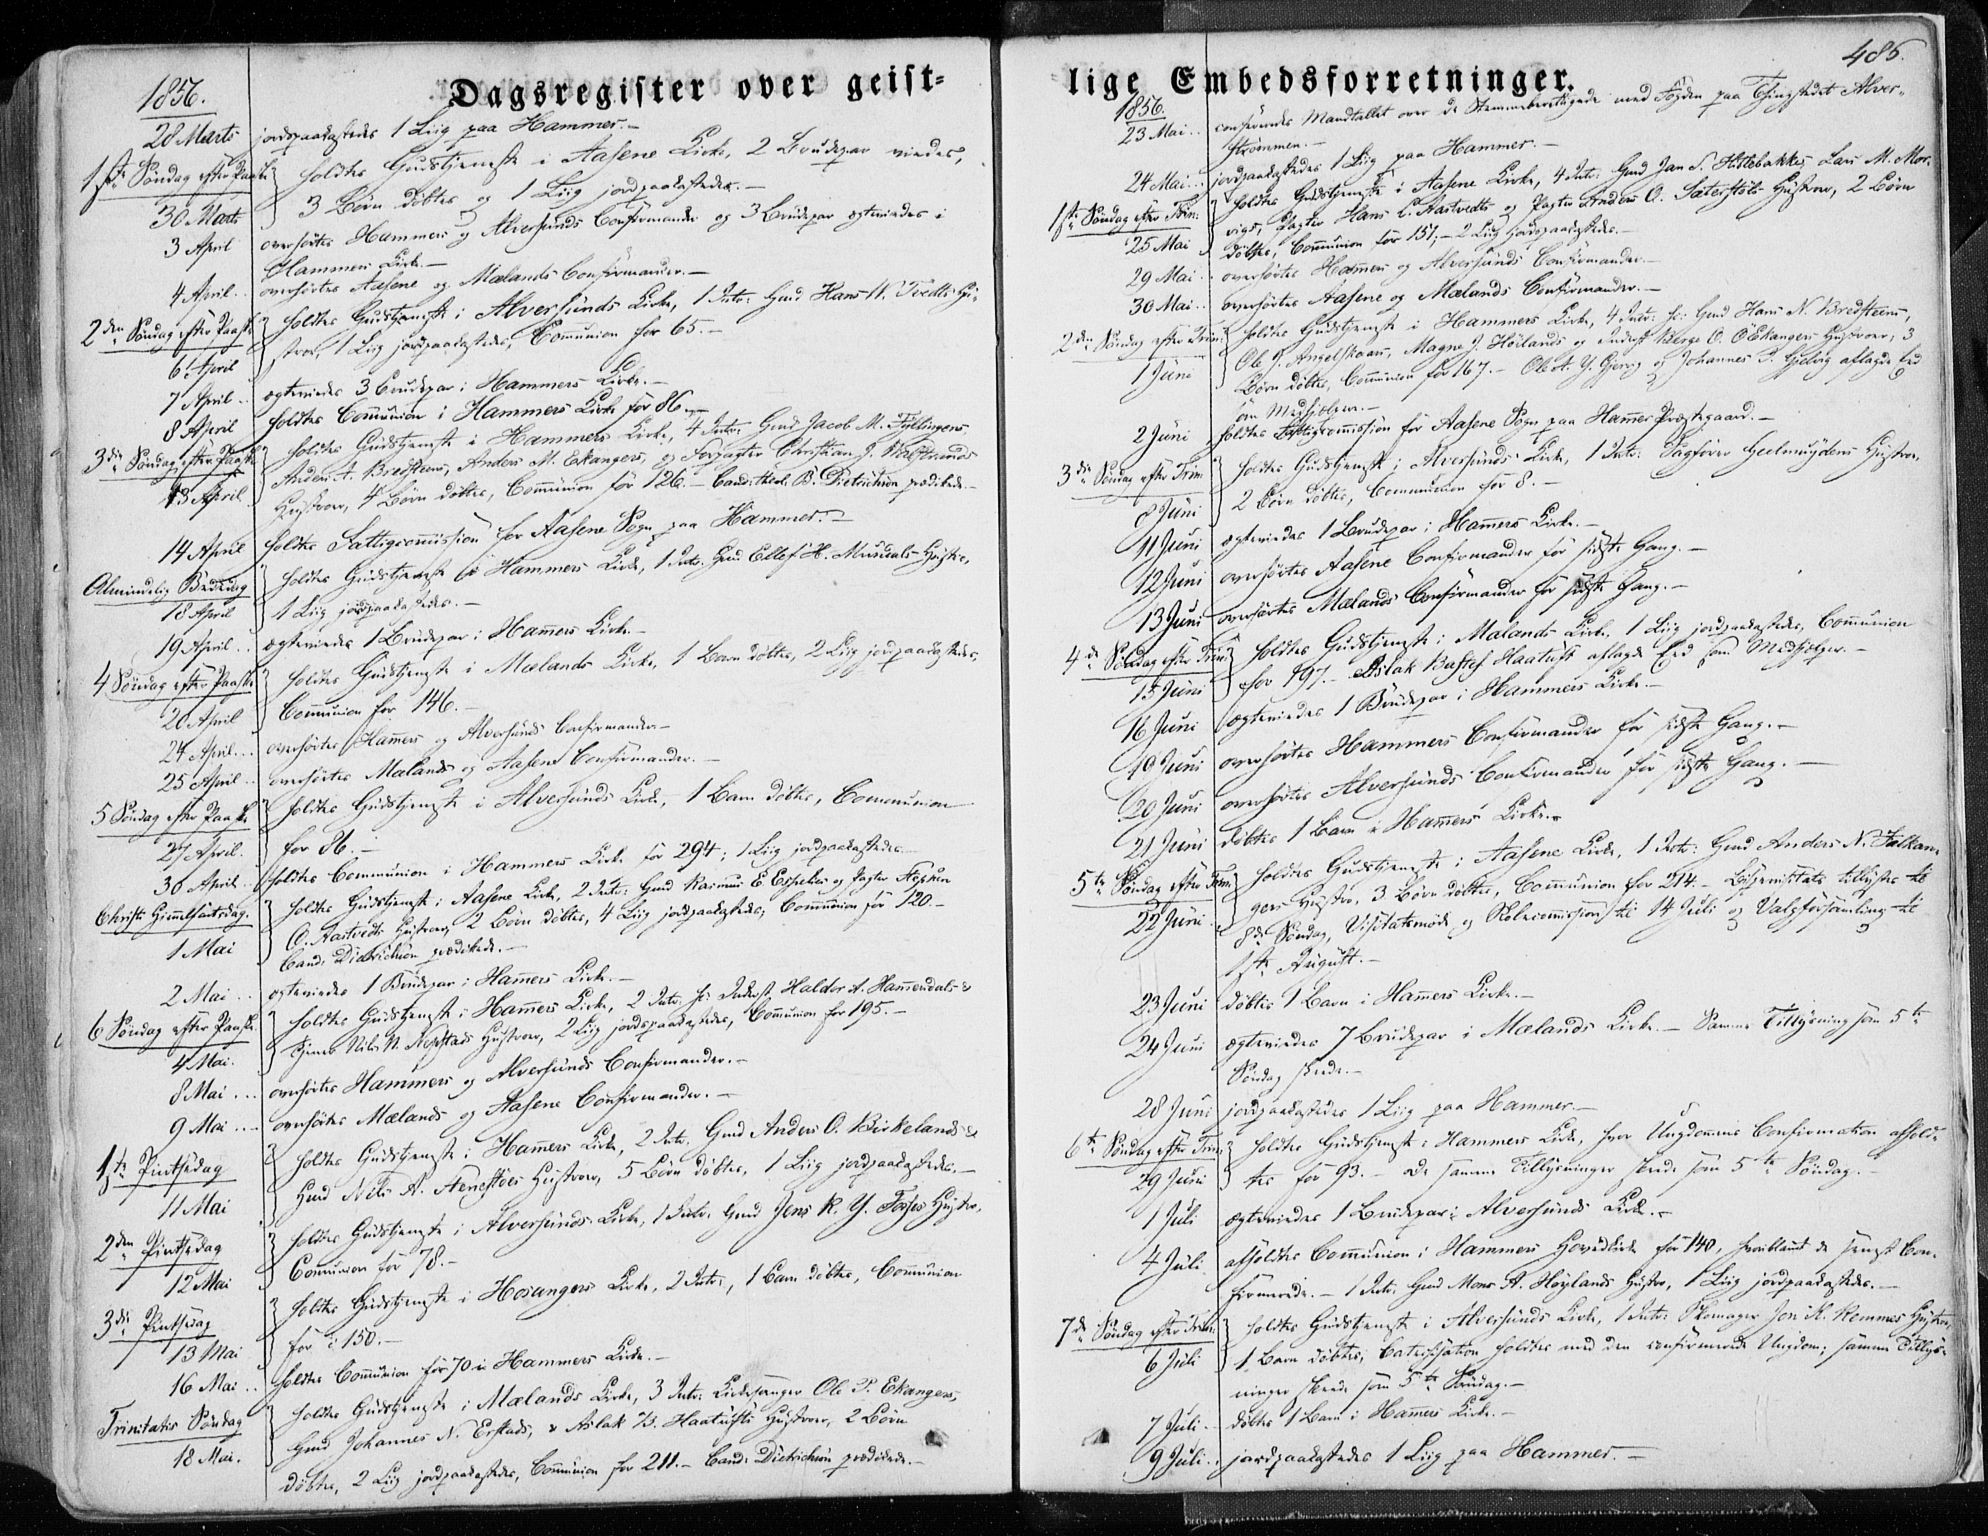 1856.
Dagsregister over geist=
28 Marts jordpaakastedes 1 Liig paa Hammer.-
1ste Søndag efter Paaske holdtes Gudstjeneste i Aasene Kirke, 2 Brudepar viedes,
30 Marts 3 Børn døbtes og 1 Liig jordpaakastedes.-
3 April overhørtes Hammers og Alversunds Confirmander og 3 Brudepar ægteviedes i
Hammers Kirke.-
4 April .. overhørtes Aasene og Mælands Confirmander.-
2den Søndag efter Paaske holdtes Gudstjeneste i Alversunds Kirke, 1 Intr: Gmd Hans N. Tvedts Hu-
6 April strue, 1 Liig jordpaakastedes, Communion for 65.-
7 April .. ægteviedes 3 Brudepar i Hammers Kirke.-
8 April holdtes Communion i Hammers Kirke for 86.-
3die Søndag efter Paaske holdtes Gudstjeneste i Hammers Kirke, 4 Intr: Gmd Jacob M. Fyllingens
Anders A. Bredsteens, Anders M. Ekangers, og Forpagter Christian J.
13 April Hustruer, 4 Børn døbtes, Communion for 126.- Cand. theol. B. Dietrichson prædikede.-
14 April holdtes Fattigcommission for Aasene Sogn paa Hammer.-
Almindelig Bededag holdtes Gudstjeneste i Hammers Kirke, 1 Intr. Gmd Ellef H. Hustru,
18 April 1 Liig jordpaakastedes.-
19 April .. ægteviedes 1 Brudepar i Hammers Kirke.-
4 Søndag efter Paaske holdtes Gudstjeneste i Mælands Kirke, 1 Barn døbtes, 2 Liig jordpaakastedes,
20 April Communion for 146.-
24 April ... overhørtes Hammers og Alversunds Confirmander.-
25 April .. overhørtes Mælands og Aasene Confirmander.-
5 Søndag efter Paaske holdtes Gudstjeneste i Alversunds Kirke, 1 Barn døbtes, Communion
27 April. for 86.-
30 April .. holdtes Communion i Hammers Kirke for 294; 1 Liig jordpaakastedes
Christi Himmelfartsdag. holdtes Gudstjeneste i Aasene Kirke, 2 Intr: Gmd Rasmus E. og Pagter
1 Mai O. Aastvedts Hustruer, 2 Børn døbtes, 4 Liig jordpaakastedes; Communion for 120.-
Cand: Dietrichson prædikede.-
2 Mai .. ægteviedes 1 Brudepar i Hammers Kirke.-
6 Søndag efter Paaske. holdtes Gudstjeneste i Hammers Kirke, 2 Intr. Inderst Haldor A. Hammersdals &
4 Mai. Nils N. Hustruer, 2 Liig jordpaakastedes, Communion for 195.-
8 Mai ... overhørtes Hammers og Alversunds Confirmander.-
9 Mai ... overhørtes Mælands og Aasene Confirmander.-
1ste Pintsedag holdtes Gudstjeneste i Hammers Kirke, 2 Intr. Gmd Anders O. Birkelands &
11 Mai Gmd Nils A. Hustruer, 5 Børn døbtes, 1 Liig jordpaakastedes.-
2den Pintsedag holdtes Gudstjeneste i Alversunds Kirke, 1 Intr. Gmd Jens R. Y. Fosses Hustru,
12 Mai Communion for 78.-
3die Pintsedag holdtes Gudstjeneste i Hosangers Kirke, 2 Intr:, 1 Barn døbtes, Communion
13 Mai for 150.-
16 Mai .. holdtes Communion for 70 i Hammers Kirke.-
Trinitatis Søndag holdtes Gudstjeneste i Mælands Kirke, 3 Intr: Kirkesanger Ole P. Ekangers,
18 Mai. Gmd Johannes N. Erstads, & Aslak B. Haatufts Hustruer, 2 Børn
døbtes, 2 Liig jordpaakastedes, Communion for 211.- Cand: Dietrichson prædikede.-
485.
lige Embedsforretninger.
1856.
23 Mai .. confereredes Mandtallet over de Stemmeberettigede med Fogden paa Thingstedet Alver-
strømmen.-
24 Mai .. jordpaakastedes 1 Liig paa Hammer.-
1ste Søndag efter Trin: holdtes Gudstjeneste i Aasene Kirke, 4 Intr: Gmd Jan S. Hitlebakkes, Lars M. Mor-
vigs, Pagter Hans L. Aastvedts og Pagter Anders O. Sæterstøls Hustruer, 2 Børn
25 Mai døbtes, Communion for 151,- 2 Liig jordpaakastedes.-
29 Mai .. overhørtes Hammers og Alversunds Confirmander.-
30 Mai .. overhørtes Aasene og Mælands Confirmander.-
2den Søndag efter Trin: holdtes Gudstjeneste i Hammers Kirke, 4 Intr: Gmd Hans N. Bredsteens,
Ole J. Angelskaars, Magne J. Høilands og Inderst Børge O. Ekangers Hustruer, 3
1 Juni Børn døbtes, Communion for 167.- Ole A. Y. Gjervig og Johannes P. Gjelvig aflagde Eed
som Medhjælpere.-
2 Juni holdtes Fattigcommission for Aasene Sogn paa Hammer Præstegaard.-
3die Søndag efter Trin: holdtes Gudstjeneste i Alversunds Kirke, 1 Intr: Sagfører Geelmuydens Hustru,
8 Juni 2 Børn døbtes, Communion for 8.-
11 Juni ægteviedes 1 Brudepar i Hammers Kirke.-
12 Juni overhørtes Aasene Confirmander for sidste Gang.-
13 Juni overhørtes Mælands Confirmander for sidste Gang.-
4de Søndag efter Trin: holdtes Gudstjeneste i Mælands Kirke, 1 Liig jordpaakastedes, Communion
15 Juni for 197.- Aslak Haatuft aflagde Eed som Medhjælper.-
16 Juni ægteviedes 1 Brudepar i Hammers Kirke.-
19 Juni overhørtes Hammers Confirmander for sidste Gang.-
20 Juni overhørtes Alversunds Confirmander for sidste Gang.-
21 Juni døbtes 1 Barn i Hammers Kirke.-
5te Søndag efter Trin: holdtes Gudstjeneste i Aasene Kirke, 1 Intr: Gmd Anders N. Falkan-
22 Juni gers Hustru, 3 Børn døbtes, Communion for 214.- Bispevisitats tillystes til
8de Søndag, Visitatsmøde og Skolecommission til 14 Juli og Valgforsamling til
1ste August.-
23 Juni døbtes 1 Barn i Hammers Kirke.-
24 Juni ægteviedes 7 Brudepar i Mælands Kirke.- Samme Tillysning som 5te
Søndag skede.-
28 Juni jordpaakastedes 1 Liig paa Hammer.-
6te Søndag efter Trin: holdtes Gudstjeneste i Hammers Kirke, hvor Ungdommens Confirmation afhold-
29 Juni tes for 93.- De samme Tillysninger skede som 5te Søndag.-
1 Juli ægteviedes 1 Brudepar i Alversunds Kirke.-
4 Juli. afholdtes Communion i Hammers Hovedkirke for 140, hvoriblandt de senest Con-
firmerede.- 1 Intr. Gmd Mons A. Høylands Hustru, 1 Liig jordpaakastedes.-
7de Søndag efter Trin: holdtes Gudstjeneste i Alversunds Kirke, 1 Intr: Skomager Jon K. Remmes Hustru,
6 Juli 1 Barn døbtes, Catechisation holdtes med den confirmerede Ungdom; samme Tillys-
ninger skede som 5te Søndag.-
7 Juli .. døbtes 1 Barn i Hammers Kirke.-
9 Juli .. jordpaakastedes 1 Liig paa Hammer.-